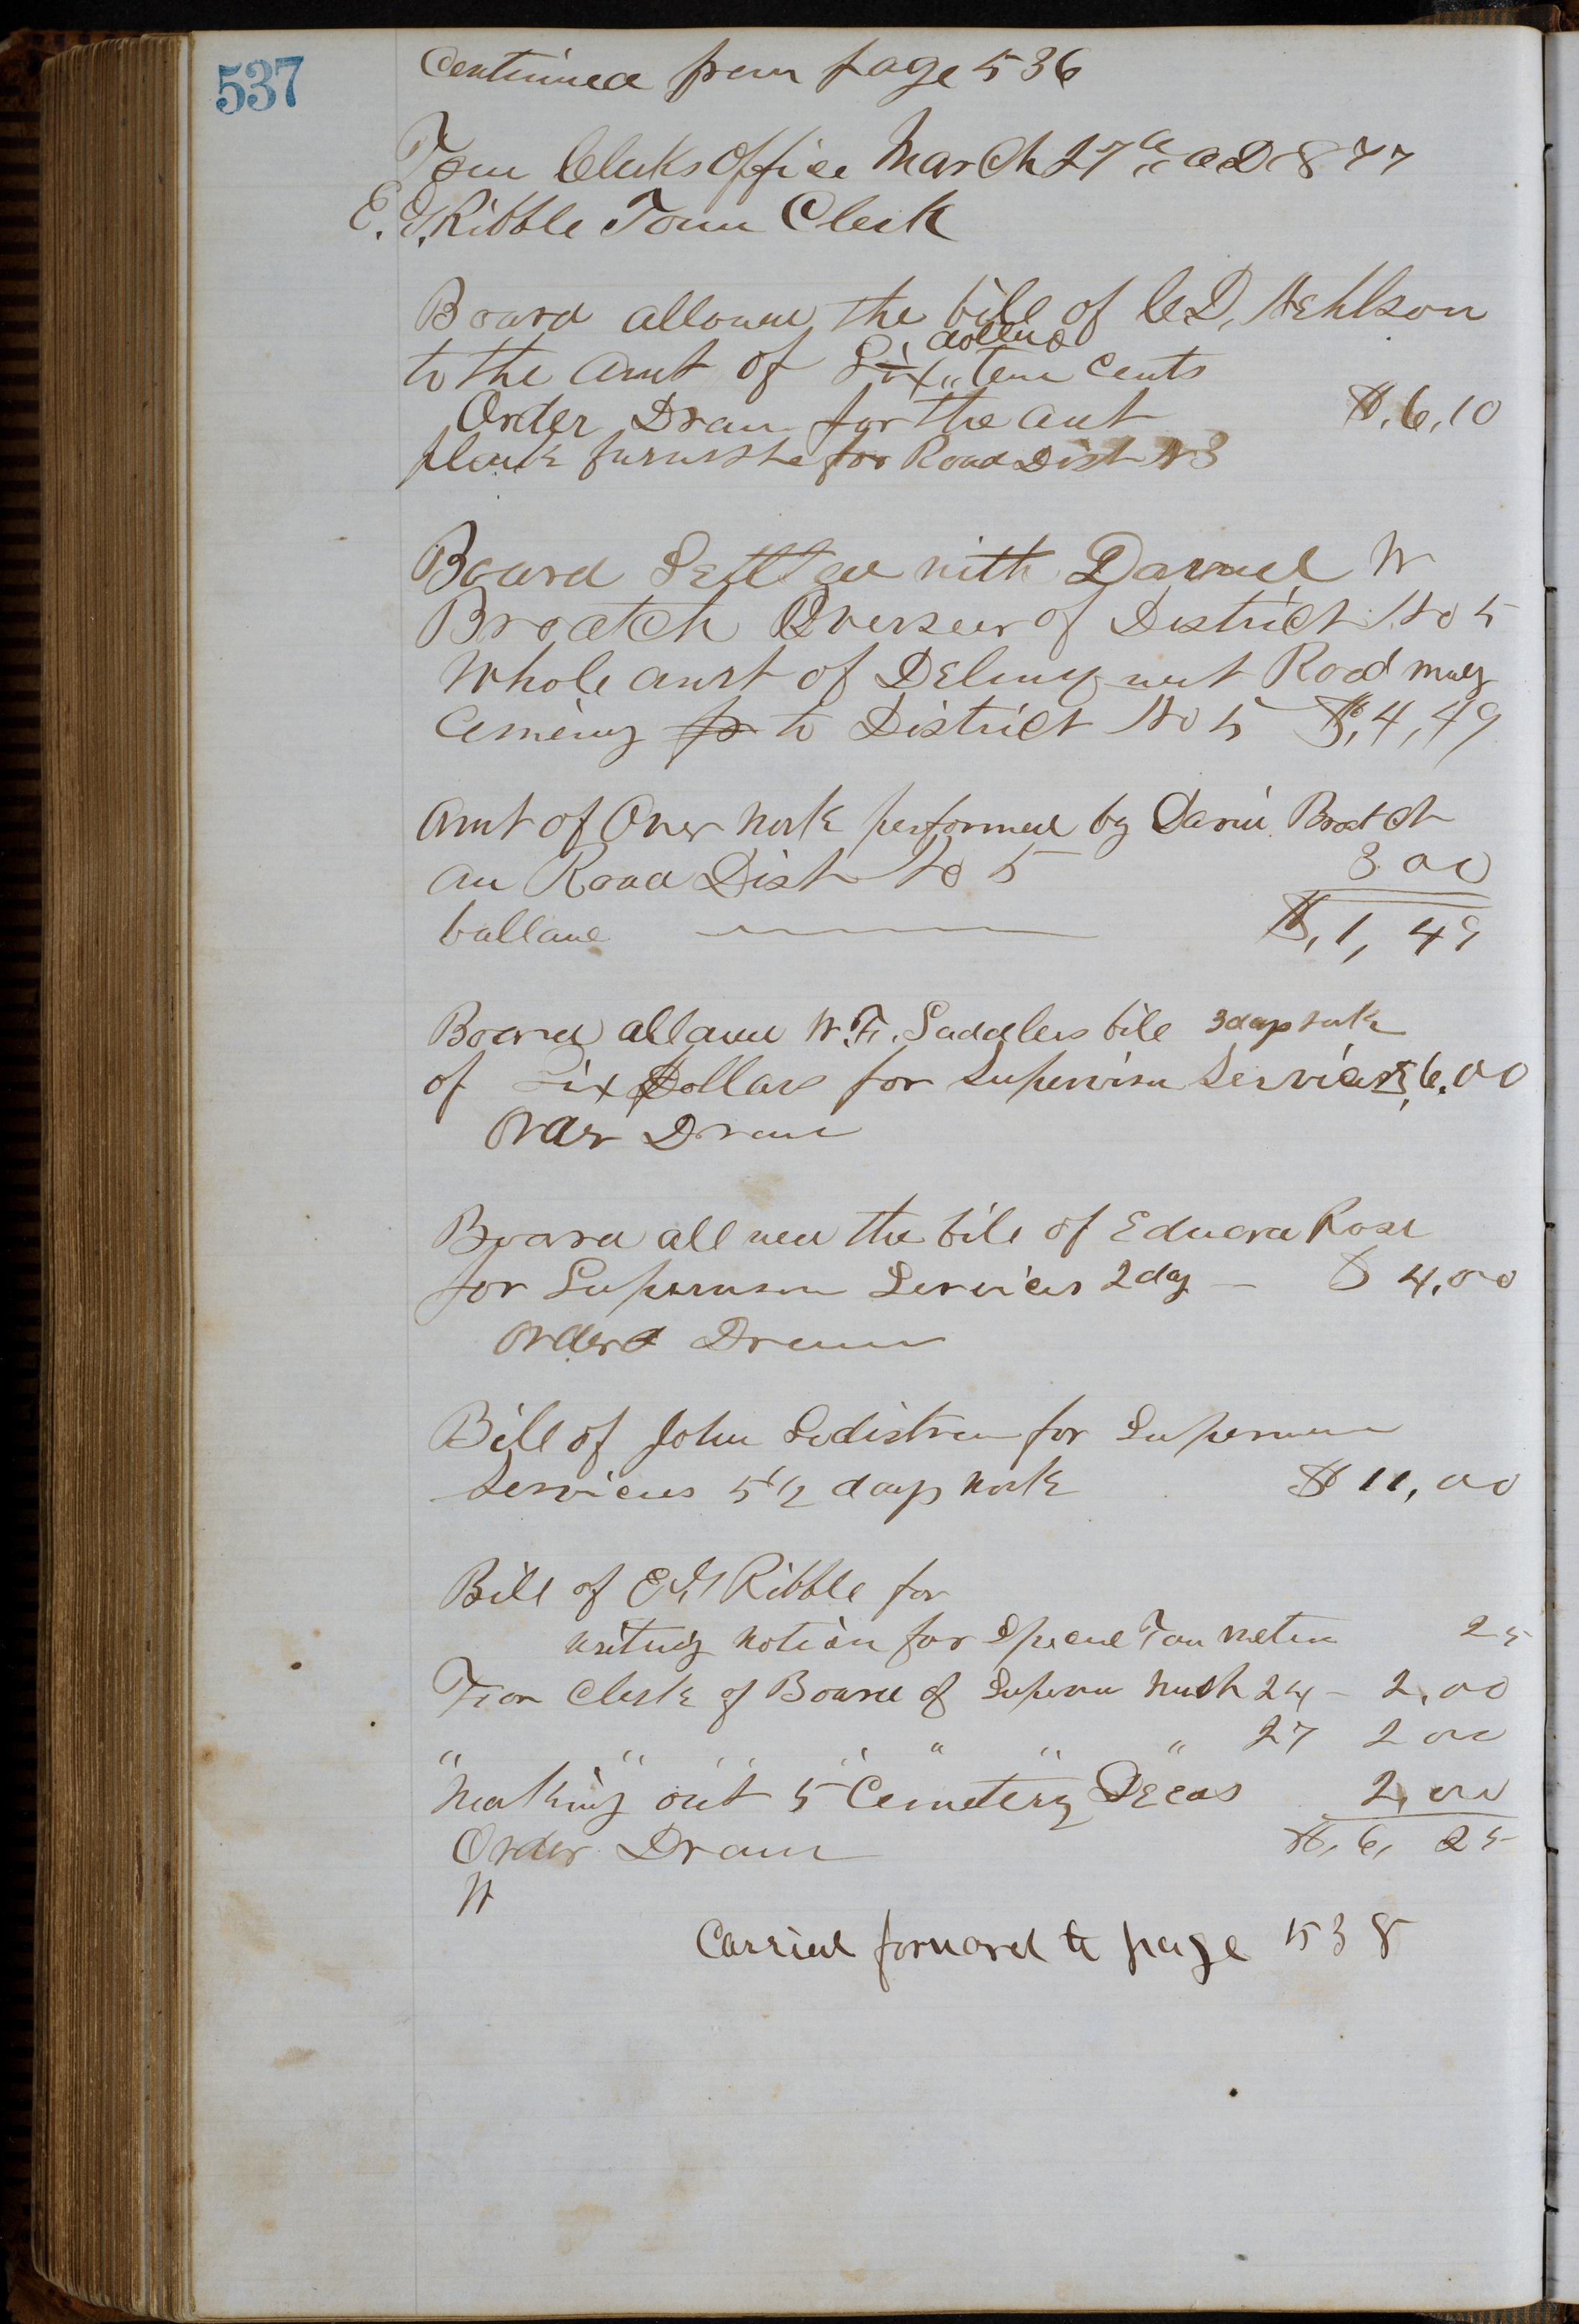 537
Continued from page 536
Town Clerks Office March 27th AD 1877
E. G. Ribble Town Clerk
Board allowed the bill of C D,
dollars
to the amt of Six " ten cents
Order Drawn for the amt $,6,10
plank furnishe for Road Dist N 3
Board Settled with Daniel W
Broatch Overseer of District No 5
Whole amt of Delinquent Road
Coming to District No 5 $,4,49
Amt of Over work performed by Daniel Broatch
on Road Dist No 5 3 00
ballance $,1, 49
Board allowed W. F. Saddlers bill 3 days work
of Six Dollars for Supervisor Services $,6.00
Order Drawn
Board allowed the bill of Edward Rose
for Supervisor Services 2 day — $ 4,00
Order Drawn
Bill of John for Supervisor
Services 5 1/2 days work $ 11,00
Bill of E G Ribble for
writing notion for Special Town 25
For Clerk of Board of Supervisor March 24 – 2,00
" " " " " " " 27 2 00
Making out 5 Cemetery Deeds 2,00
Order Drawn $,6, 25
W
Carried forward to page 538